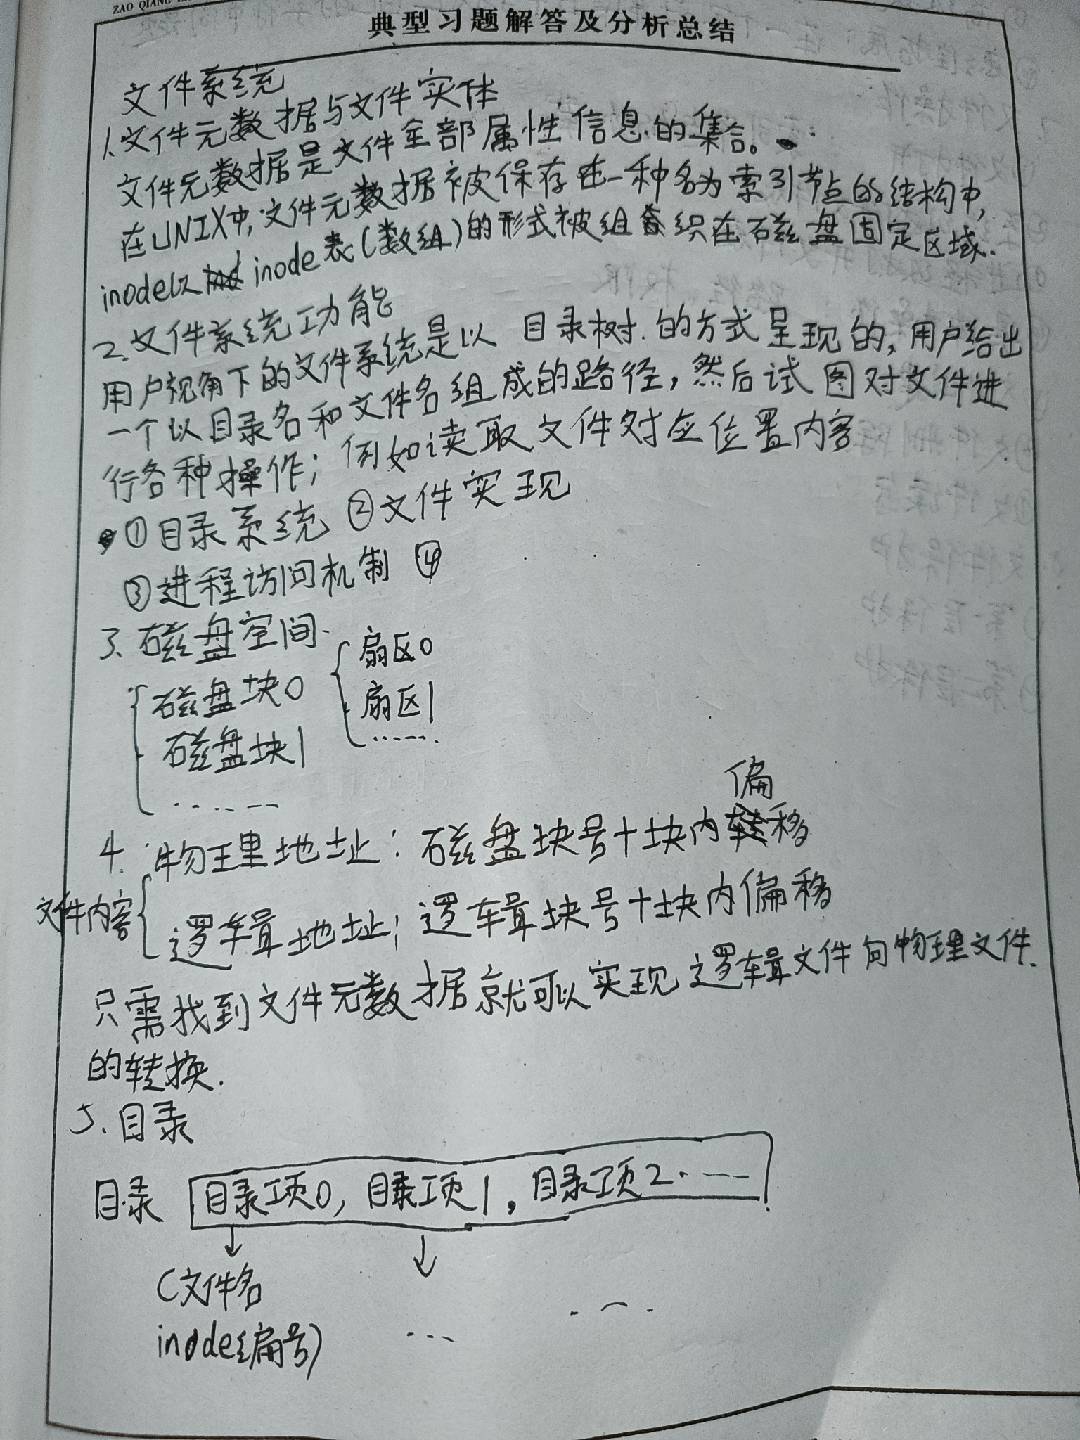 ZAO QIANG
典型习题解答及分析总结
文件系统
1.文件元数据与文件实体
文件元数据是文件全部属性信息的集合。
在UNIX中,文件元数据被保存在一种名为索引节点的结构中,
inode以 inode表(数组)的形式被组织在磁盘固定区域.
2.文件系统功能
用户视角下的文件系统是以 目录树.的方式呈现的,用户给出
一个以目录名和文件名组成的路径,然后试图对文件进
行各种操作;例如读取文件对应位置内容
①目录系统 ②文件实现
③进程访问机制 ④
3.磁盘空间.
扇区0
磁盘块0
扇区1
......
磁盘块1
......
偏
4.物理地址:磁盘块号+块内转移
文件内容
逻辑地址;逻辑块号+块内偏移
只需找到文件元数据就可以实现逻辑文件向物理文件.
的转换.
5.目录
目录 目录项0,目录项1,目录项2.---
(文件名
inode编号)
...
...